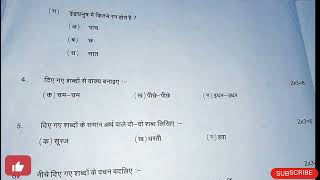 (ग) इंद्रधनुष में कितने रंग होते हैं ?
(अ) पांच
(ब) छः
(स) सात
4. दिए गए शब्दों से वाक्य बनाइए :- 2x3=6
(क) चम-चम (ख) पीछे-पीछे (ग) इधर-उधर
5. दिए गए शब्दों के समान अर्थ वाले दो-दो शब्द लिखिए :- 2x3=6
(क) सूरज (ख) धरती (ग) हवा
नीचे दिए गए शब्दों के वचन बदलिए :-
SUBSCRIBE